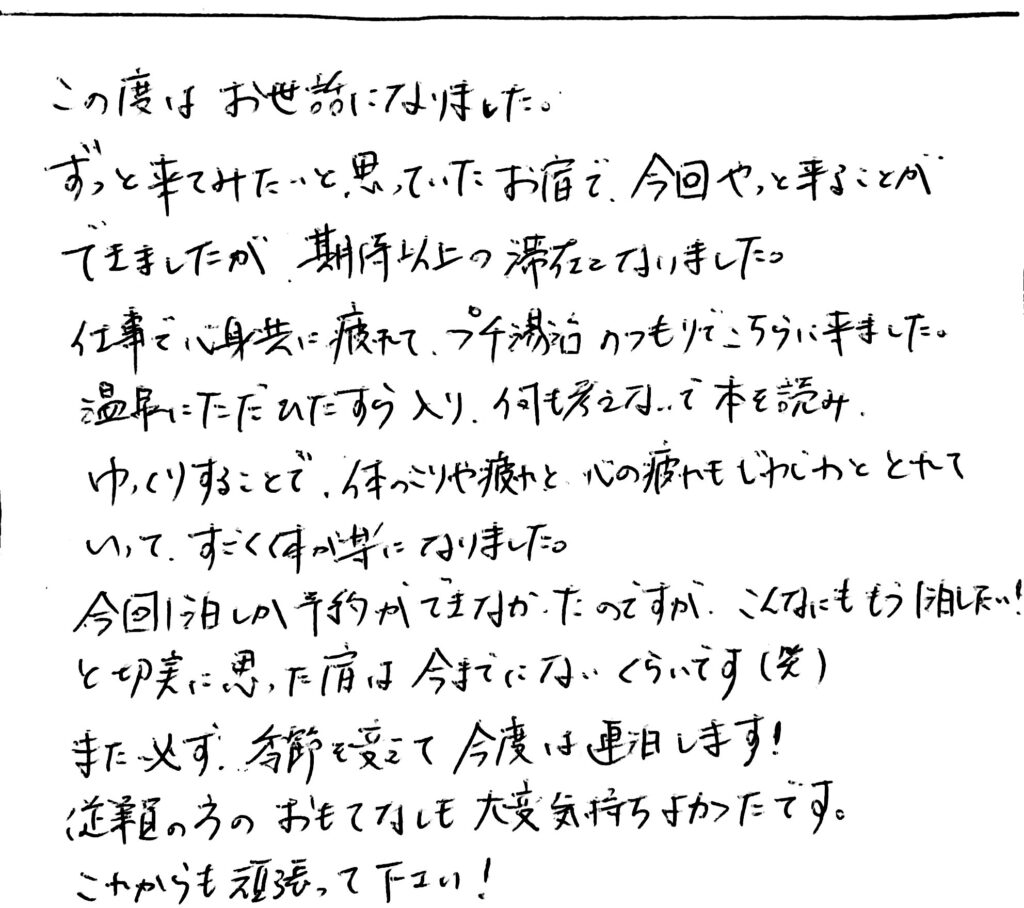 この度はお世話になりました。
ずっと来てみたいと思っていたお宿で、今回やっと来ることが
できましたが、期待以上の滞在となりました。
仕事で心身共に疲れて、プチ湯治のつもりでこちらに来ました。
温泉にただひたすら入り、何も考えないで本を読み、
ゆっくりすることで、体のこりや疲れと、心の疲れもじわじわととれて
いって、すごく体が楽になりました。
今回1泊しか予約ができなかったのですが、こんなにももう1泊したい!
と切実に思った宿は今までにないくらいです(笑)
また必ず、季節を変えて今度は連泊します!
従業員の方のおもてなしも大変気持ちよかったです。
これからも頑張って下さい!